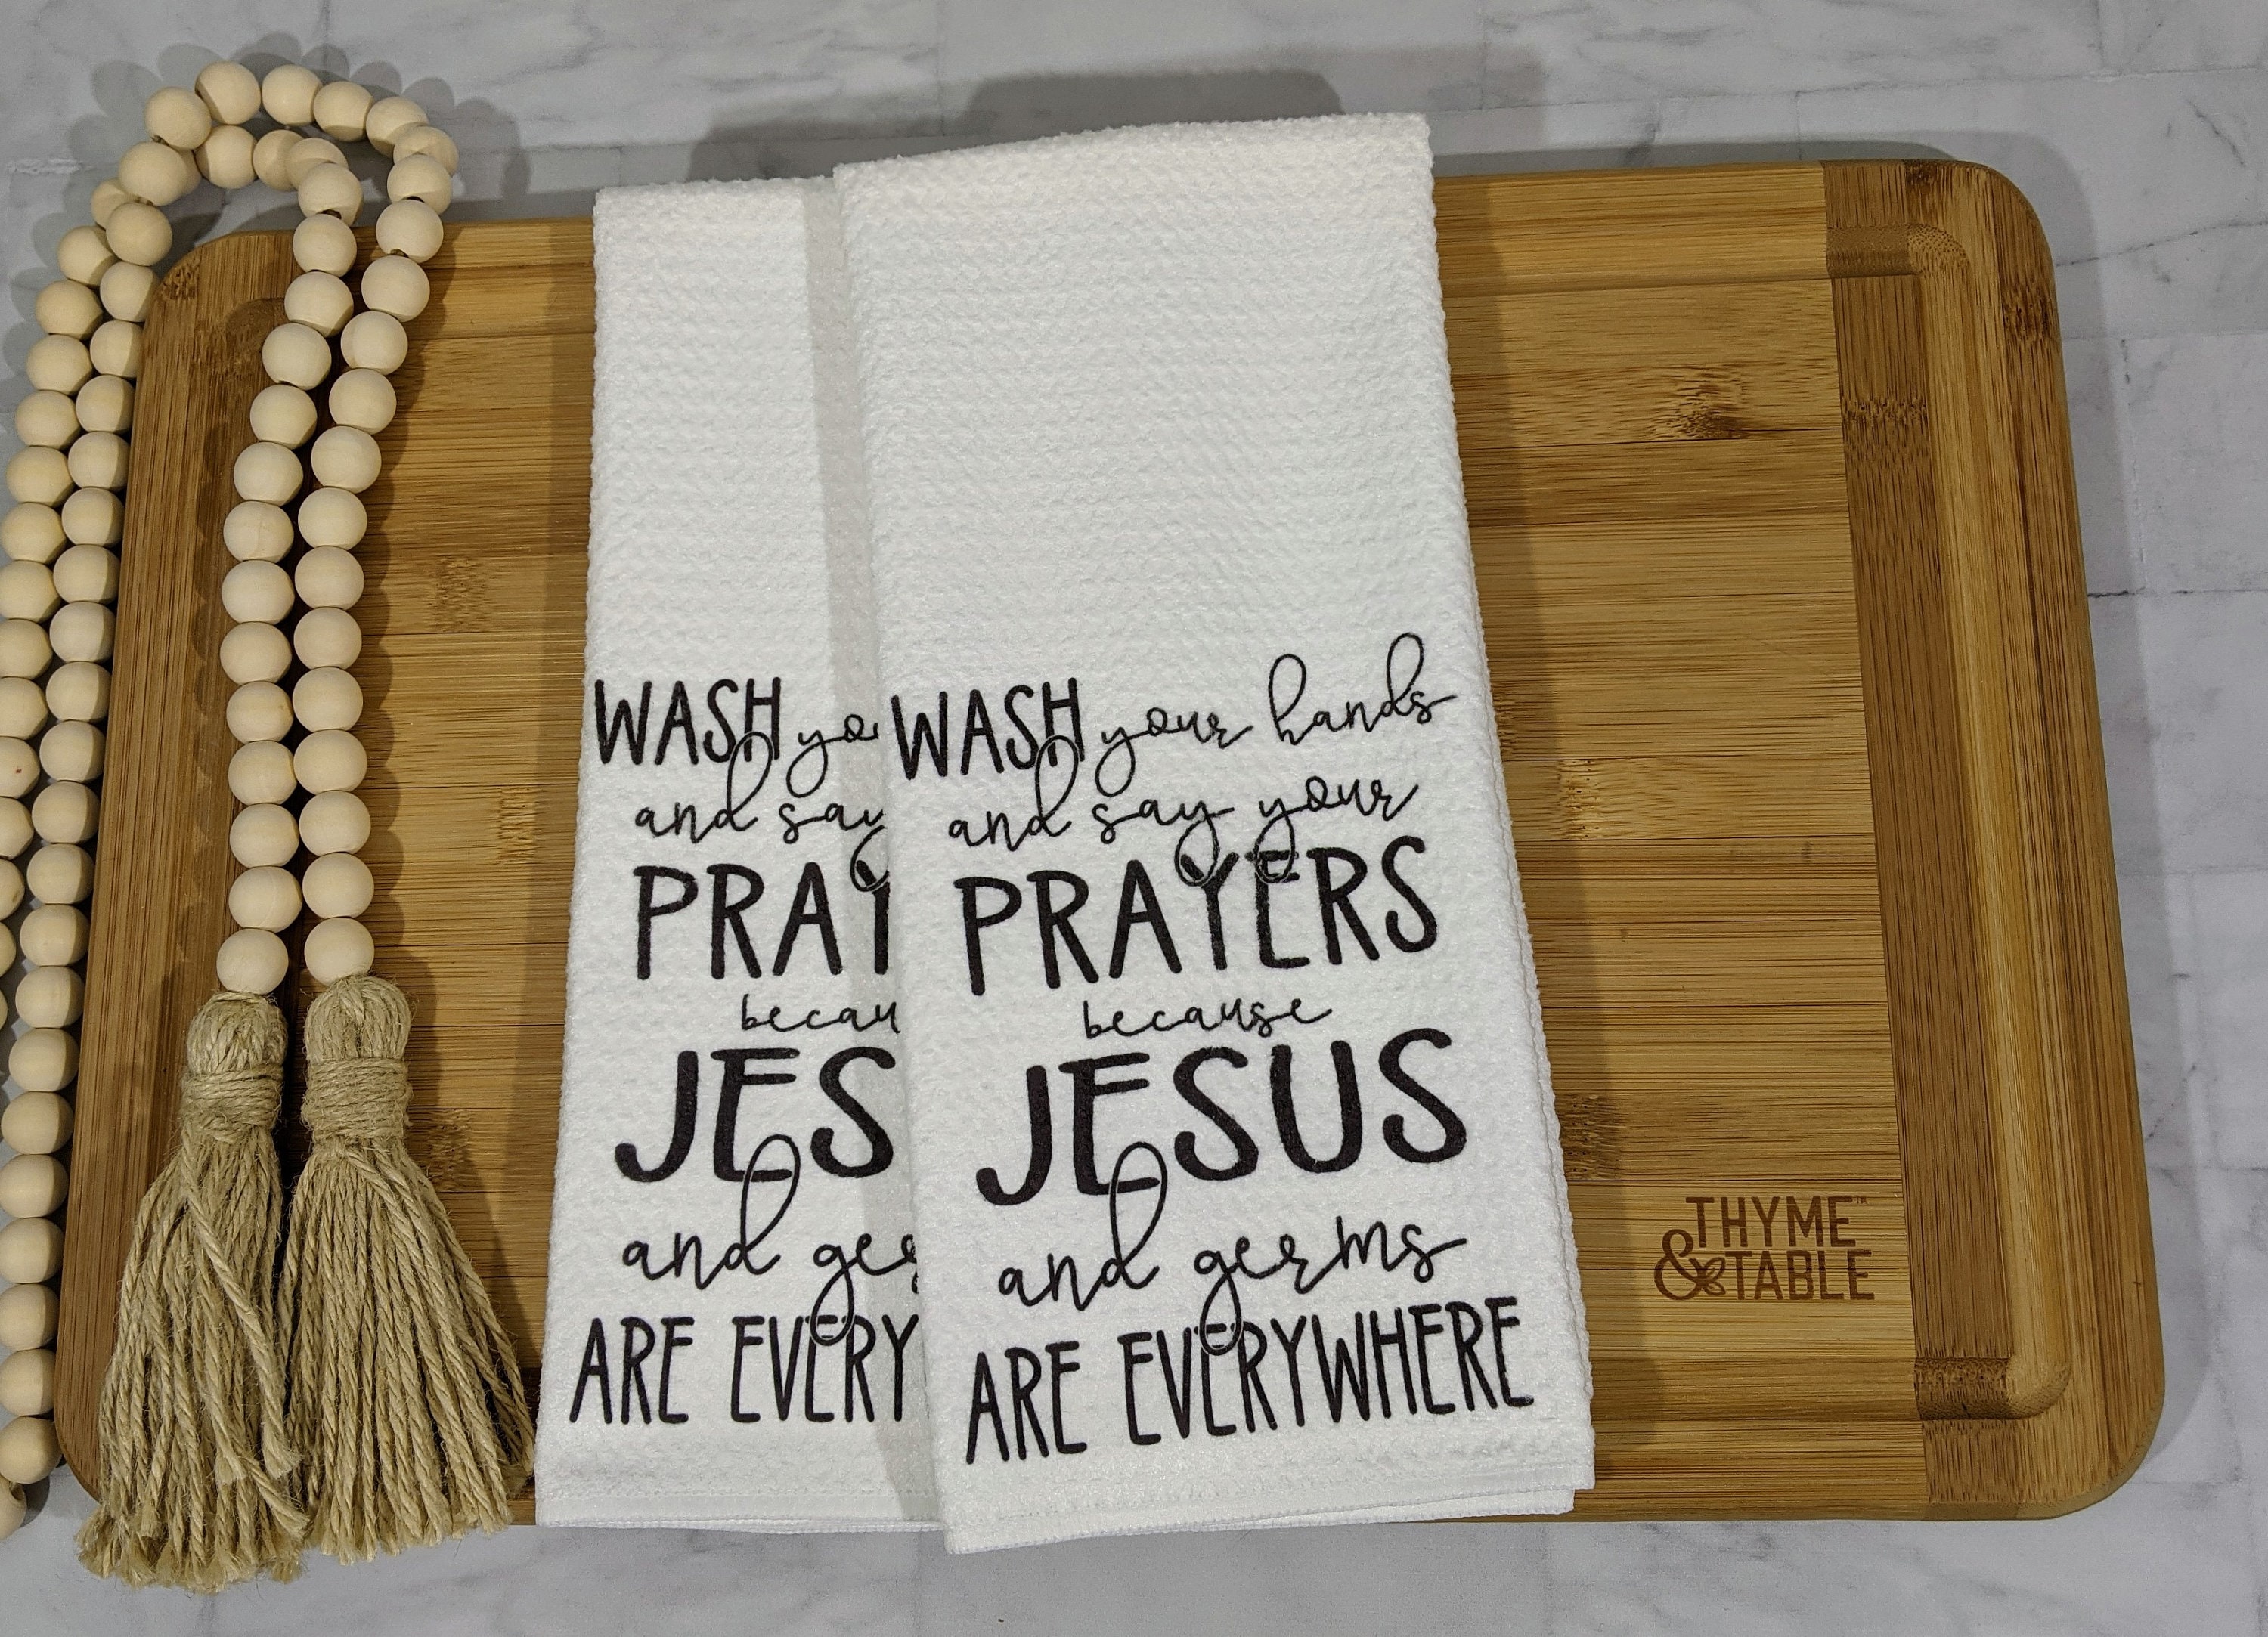 WASH yo
and say
PRAY
becau
JES
and ger
ARE EVERY
WASH your hands
and say your
PRAYERS
because
JESUS
and germs
ARE EVERYWHERE
THYME™
& TABLE